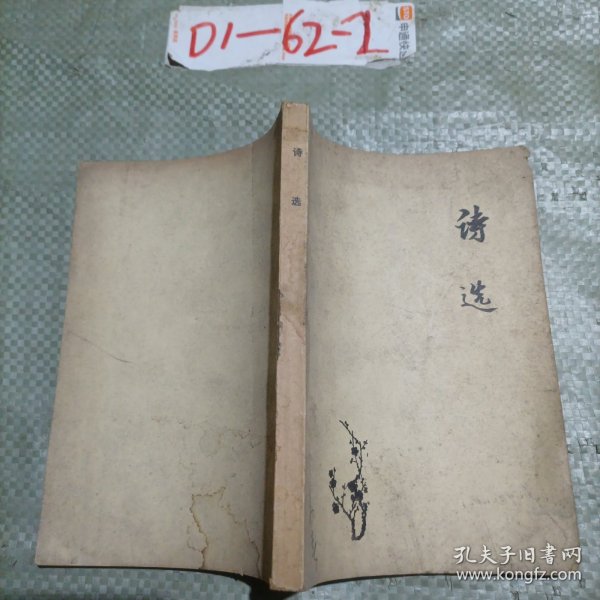 D1-62-2
申通快
诗选
诗选
孔夫子旧书网
www.kongfz.com